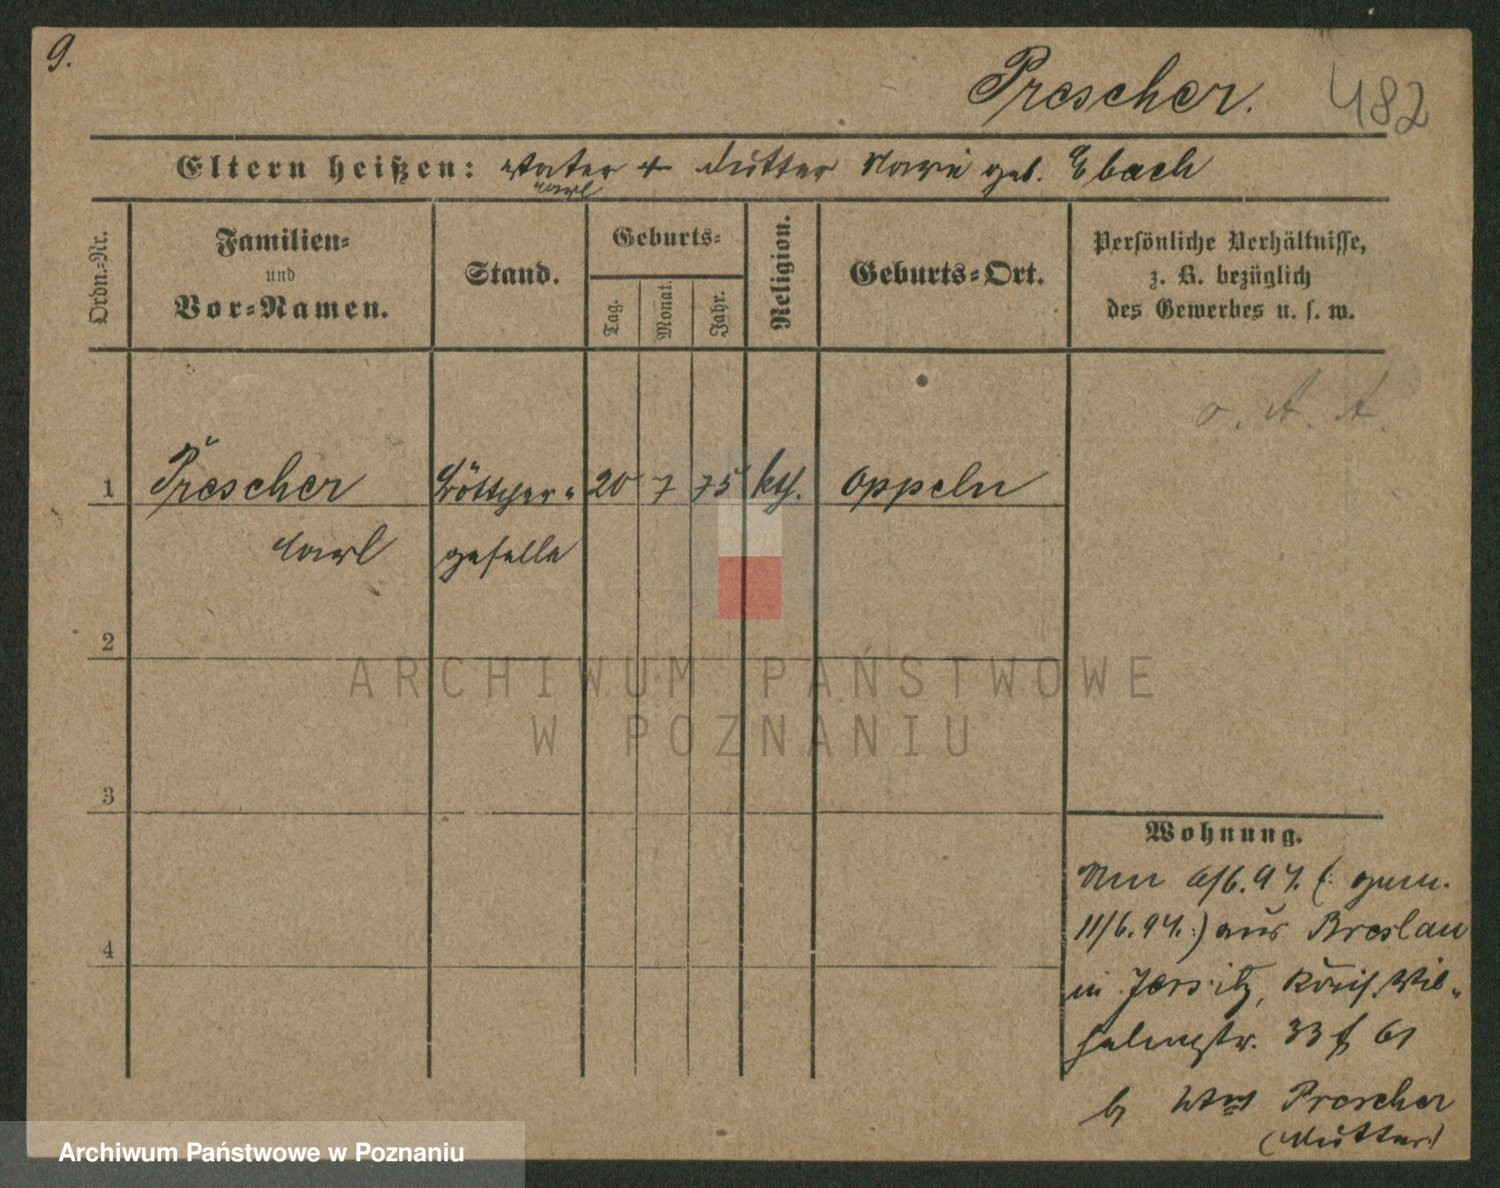 9.
Prescher. 482
Eltern heißen: Vater + Mutter Marie geb. Ebach
Carl
Ordn.=Nr.
Familien=
und
Vor=Namen.
Stand.
Geburts=
Tag.
Monat.
Jahr.
Religion.
Geburts=Ort.
Persönliche Verhältnisse,
z. B. bezüglich
des Gewerbes u. s. w.
o. A. A.
1 Prescher Böttcher= 20 7 75 kth. Oppeln
Carl geselle
2
3
4
Wohnung.
Am 6/6.97. (: gem.
11/6.97.:) aus Breslau
in Jersitz, Wil=
helmstr. 33
b/ Prescher
(Mutter)
ARCHIWUM PAŃSTWOWE
W POZNANIU
Archiwum Państwowe w Poznaniu